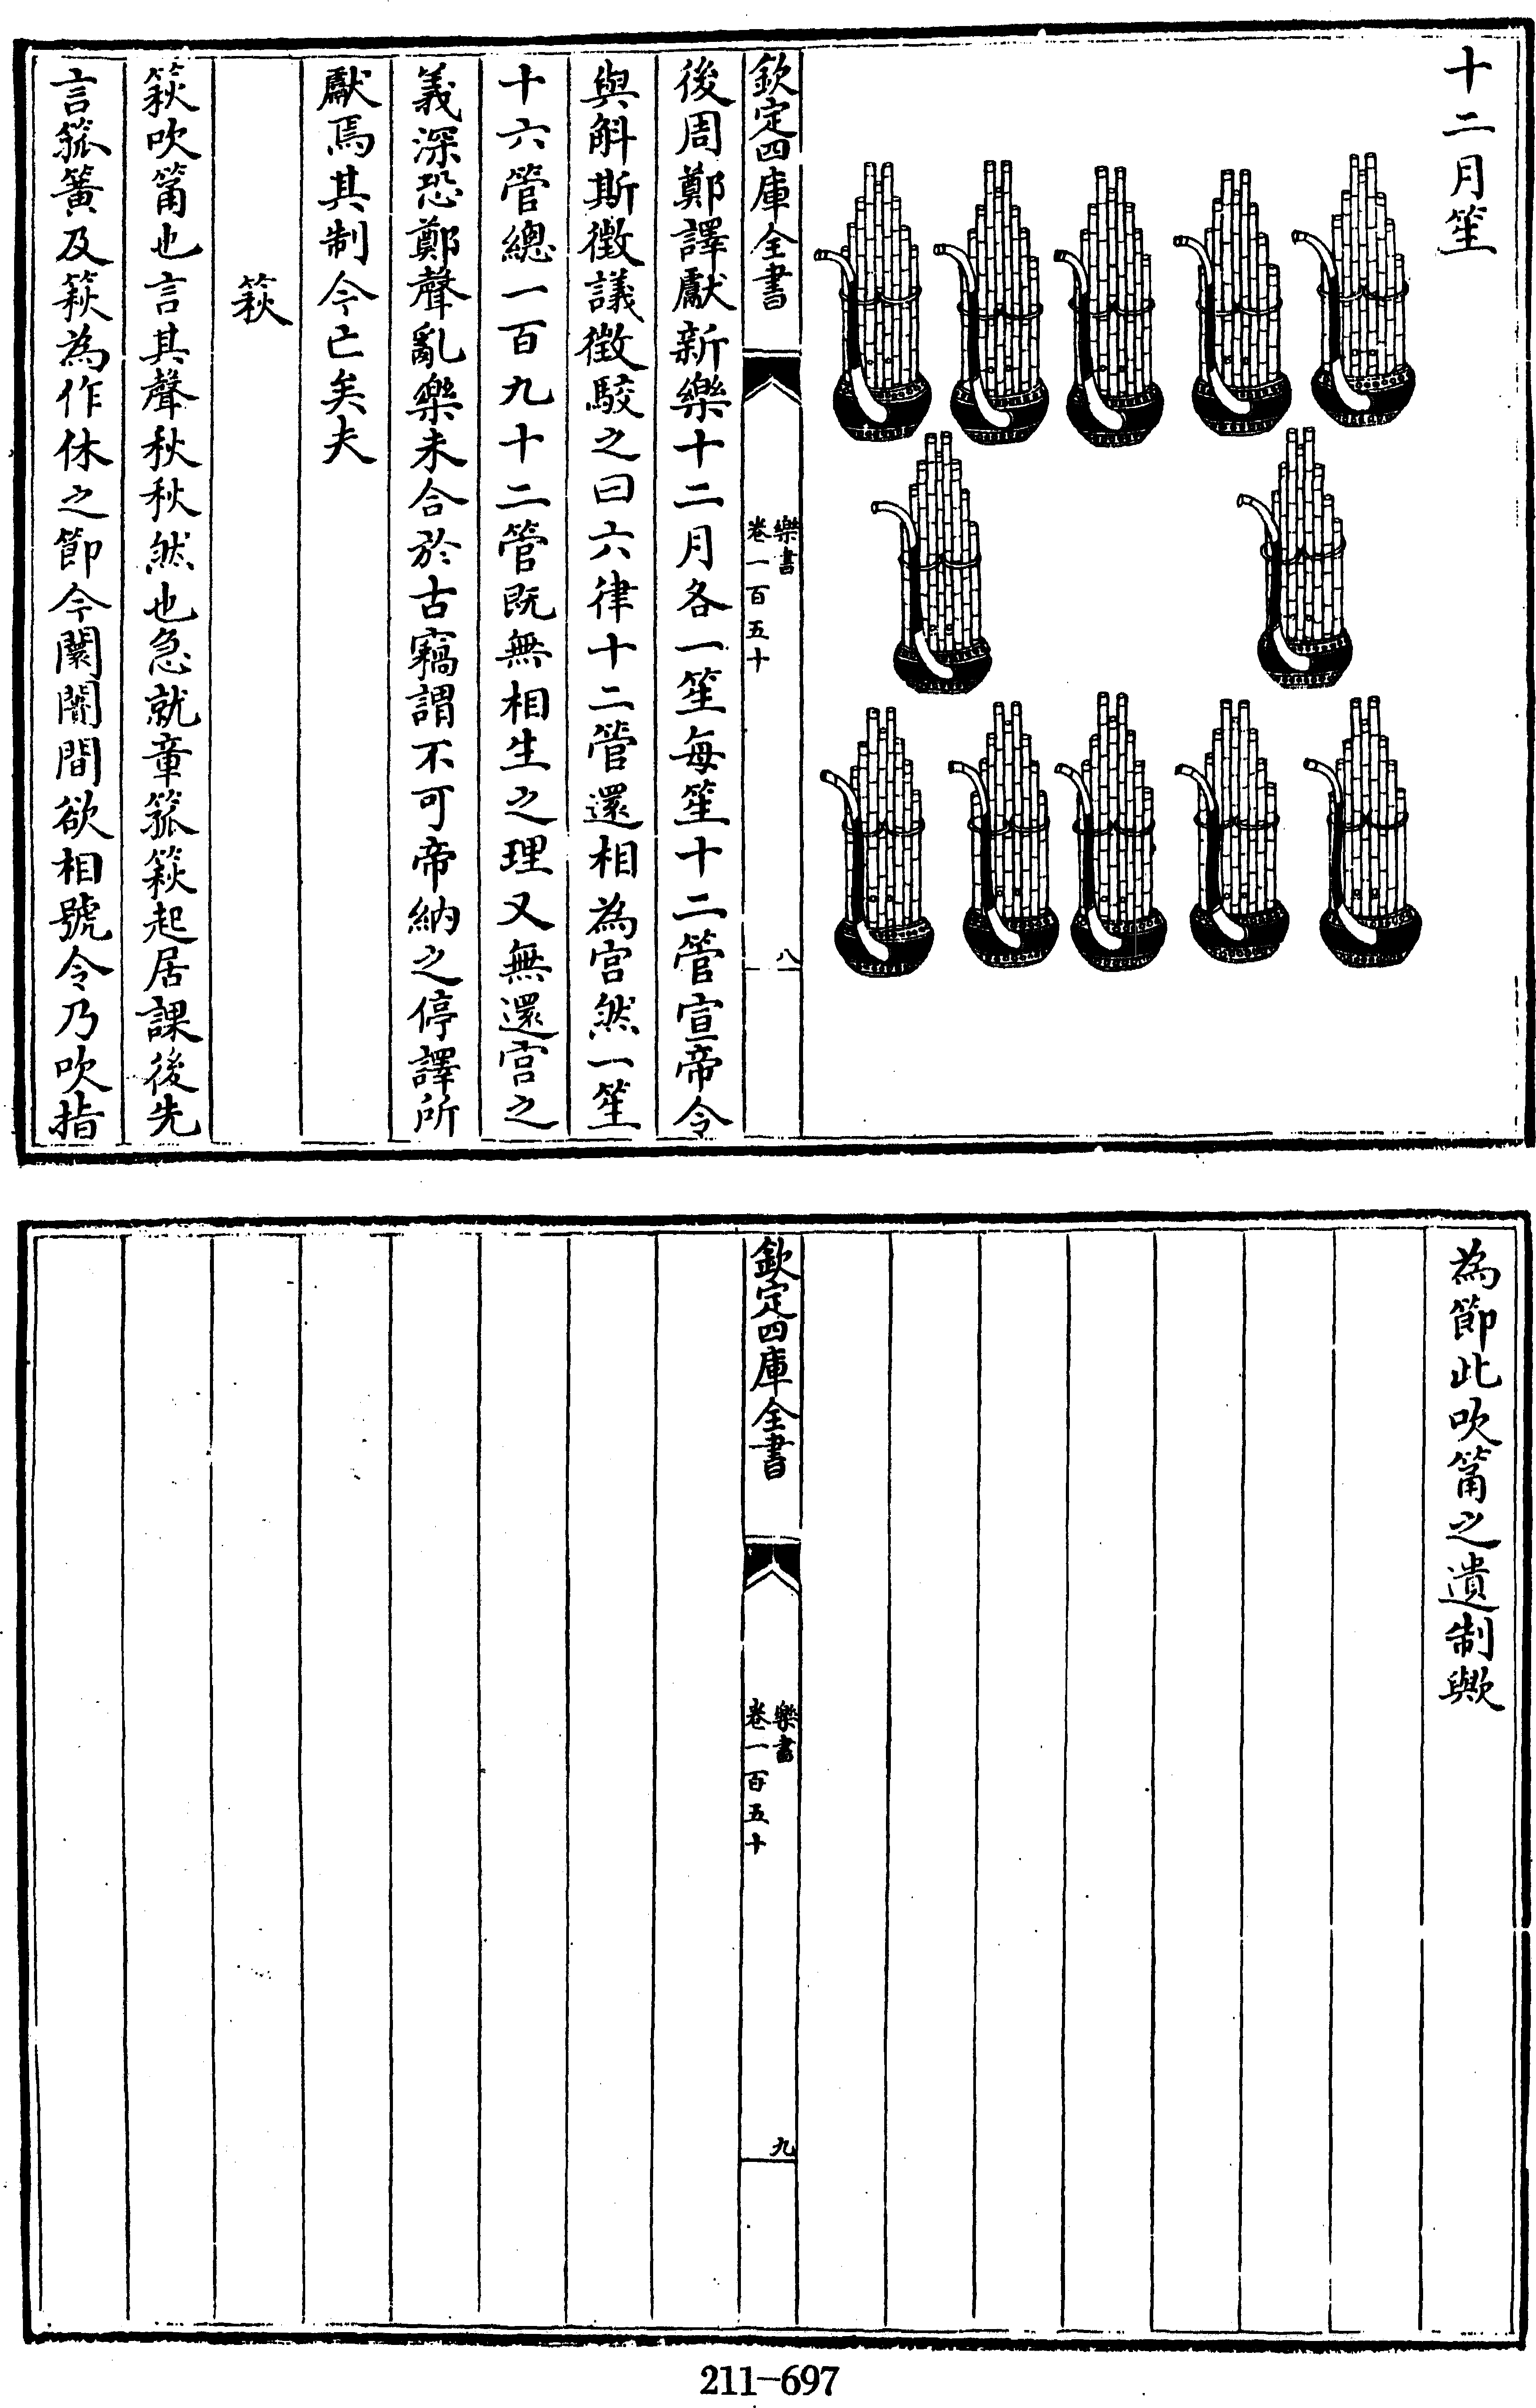 十二月笙
欽定四庫全書
樂書
卷一百五十
八
後周鄭譯獻新樂十二月各一笙每笙十二管宣帝令
與斛斯徵議徵駮之曰六律十二管還相為宫然一笙
十六管總一百九十二管既無相生之理又無還宫之
義深恐鄭聲亂樂未合於古竊謂不可帝納之停譯所
獻焉其制今亡矣夫
篍
篍吹筩也言其聲秋秋然也急就章箛篍起居課後先
言箛簧及篍為作休之節今闤闠間欲相號令乃吹指
為節此吹筩之遺制歟
欽定四庫全書
樂書
卷一百五十
九
211-697